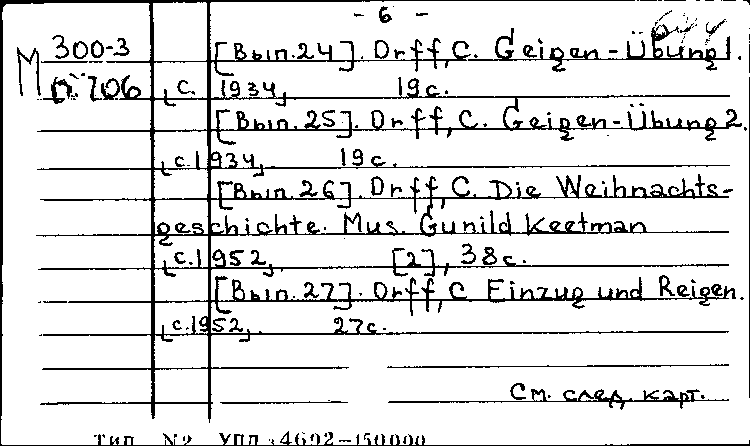 - 6 -
М 300-3 [Вып.24]. Orff, C. Geigen-Übung 1.
706 [с. 1934] 19с.
[Вып.25]. Orff, C. Geigen-Übung 2.
[с.1934]. 19с.
[Вып.26]. Orff, C. Die Weihnachts-
geschichte. Mus. Gunild Keetman
[с.1952]. [2], 38с.
[Вып.27]. Orff, C Einzug und Reigen.
[с.1952]. 27с.
См. след. карт.
Тип. №2 УПЛ 4602-150000